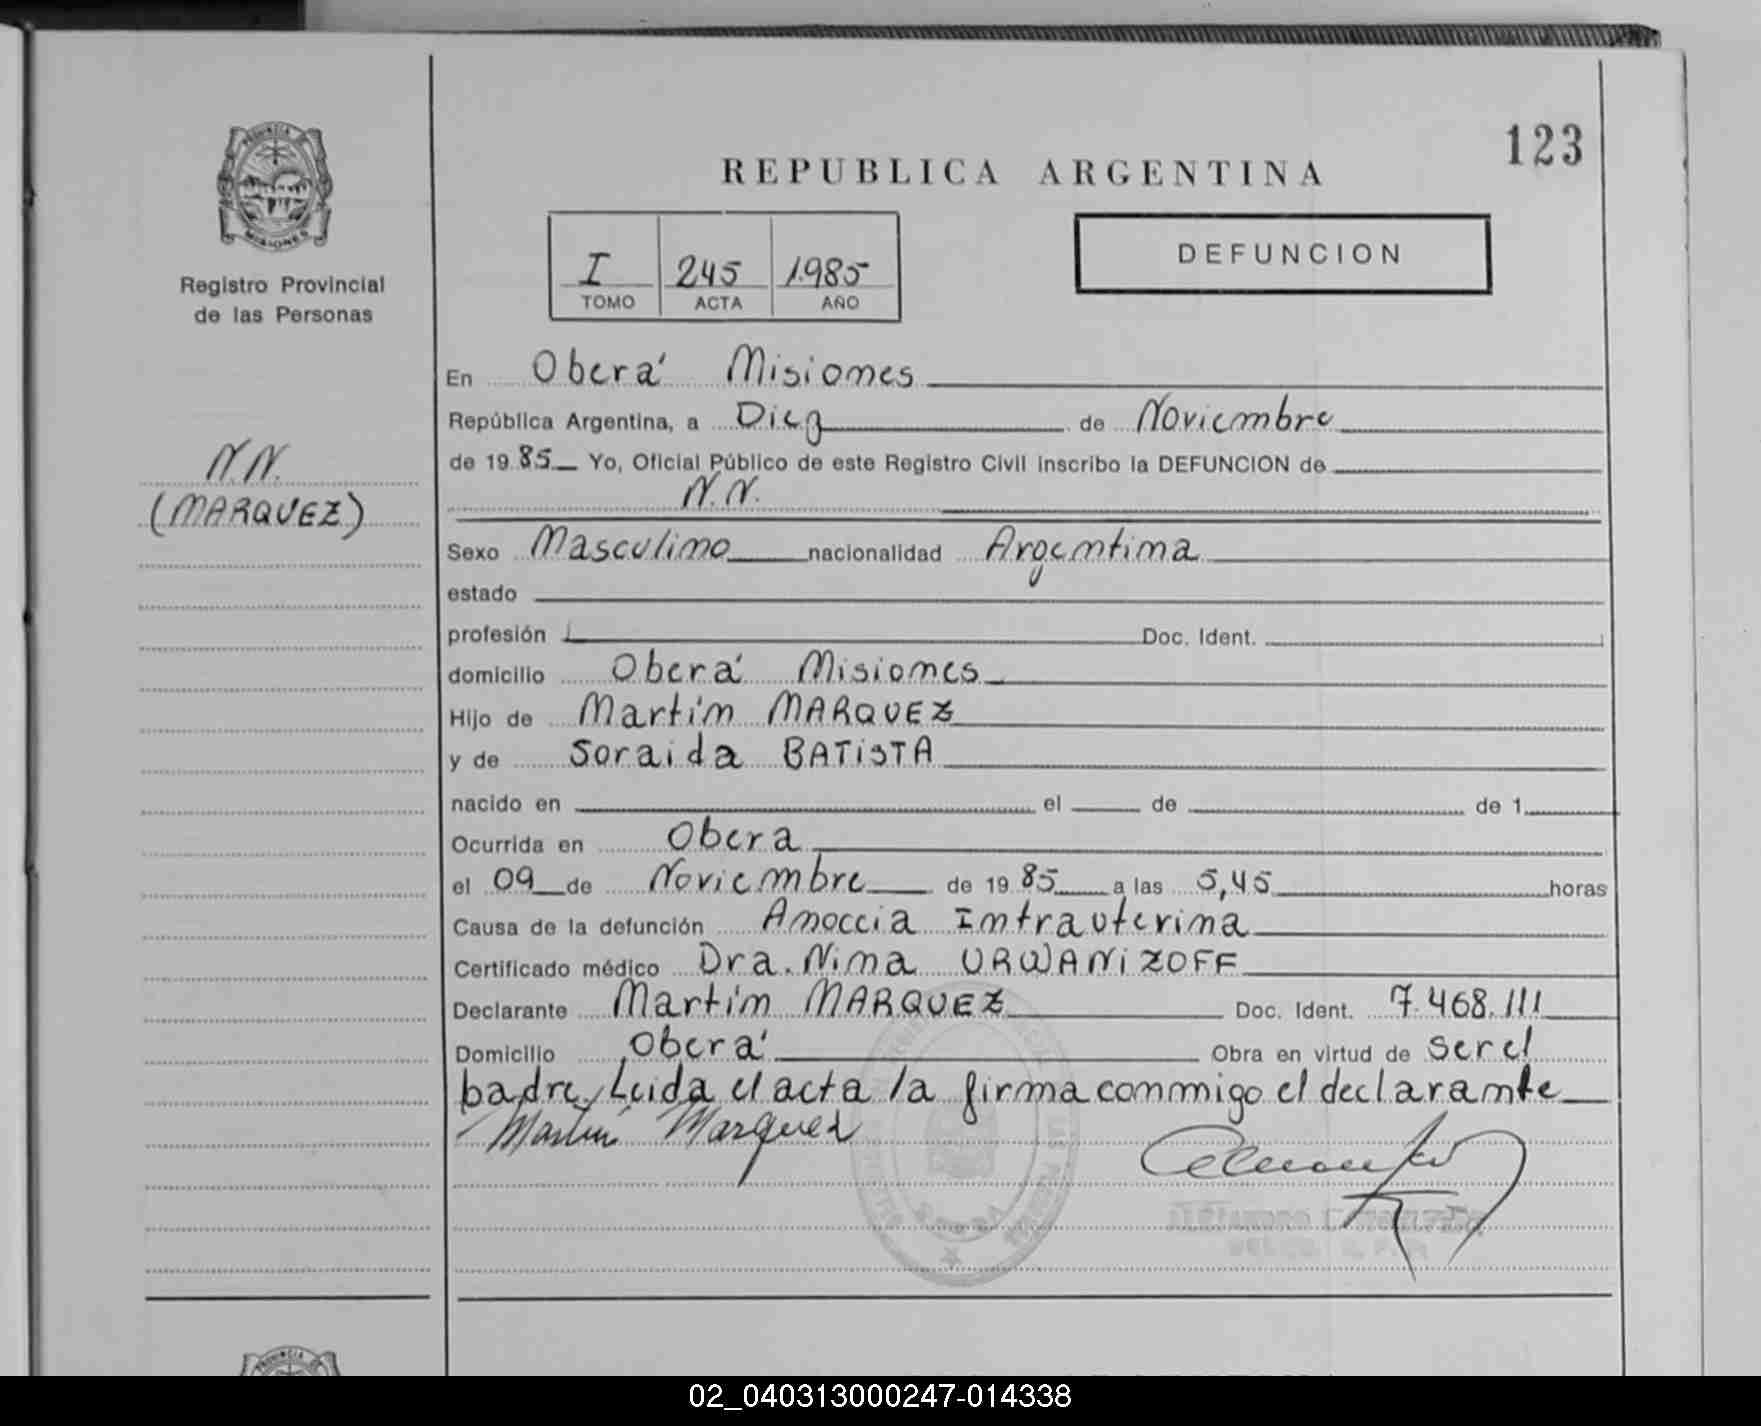 PROVINCIA
MISIONES
Registro Provincial
de las Personas
N.N.
(MARQUEZ)
123
REPUBLICA ARGENTINA
I 245 1.985
TOMO ACTA AÑO
DEFUNCION
En Oberá Misiones
República Argentina, a Diez de Noviembre
de 19 85 Yo, Oficial Público de este Registro Civil inscribo la DEFUNCION de
N.N.
Sexo Masculino nacionalidad Argentina
estado
profesión Doc. Ident.
domicilio Oberá Misiones
Hijo de Martín MARQUEZ
y de Soraida BATISTA
nacido en el de de 1
Ocurrida en Obera
el 09 de Noviembre de 19 85 a las 5,45 horas
Causa de la defunción Anoccia Intrauterina
Certificado médico Dra. Nina URWANIZOFF
Declarante Martín MARQUEZ Doc. Ident. 7.468.111
Domicilio Oberá Obra en virtud de ser el
padre, Leida el acta la firma conmigo el declarante
Martín Marquez
PROVINCIA
02_040313000247-014338